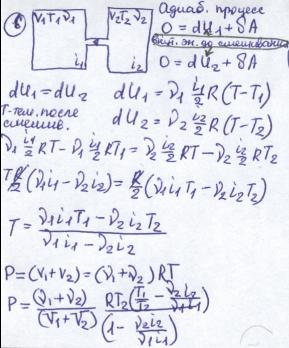 6
V₁T₁ν₁
V₂T₂ν₂
i₁
i₂
Адиаб. процесс
0 = dU₁ + δA
внут. эн. до смешивания
0 = dU₂ + δA
dU₁ = dU₂
dU₁ = ν₁ i₁/2 R (T-T₁)
T-тем. после смешив.
dU₂ = ν₂ i₂/2 R (T-T₂)
ν₁ i₁/2 RT - ν₁ i₁/2 RT₁ = ν₂ i₂/2 RT - ν₂ i₂/2 RT₂
T R/2 (ν₁i₁ - ν₂i₂) = R/2 (ν₁i₁T₁ - ν₂i₂T₂)
T = (ν₁i₁T₁ - ν₂i₂T₂)/(ν₁i₁ - ν₂i₂)
P = (V₁+V₂) = (ν₁+ν₂) RT
P = (ν₁+ν₂)/(V₁+V₂) RT₂(T₁/T₂ - ν₂i₂/ν₁i₁)/(1 - ν₂i₂/ν₁i₁)